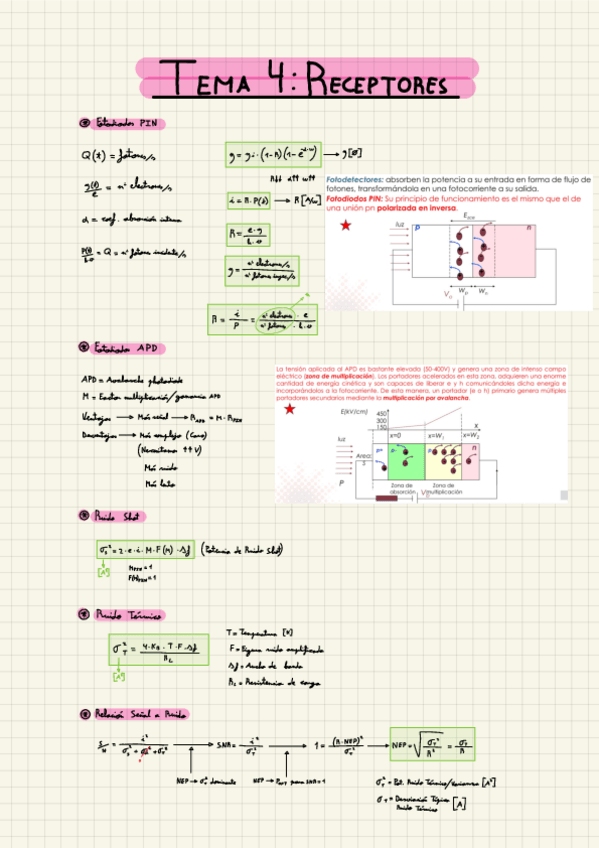 TEMA 4: RECEPTORES
Fotodiodos PIN
Q(t) = fotones/s
= nº electrones/s
α = coef. absorción interna
= Q = nº fotones incidente/s
η = ηi · (1-R)(1-e^-α·w) → η[∅]
i = R · P(t) → R [A/W]
R = e·η / h·υ
η = nº electrones/s / nº fotones ingres/s
R = i / P = nº electrones · e / nº fotones · h·υ
Fotodetectores: absorben la potencia a su entrada en forma de flujo de
fotones, transformándola en una fotocorriente a su salida.
Fotodiodos PIN: Su principio de funcionamiento es el mismo que el de
una unión pn polarizada en inversa.
luz
p
n
Wp
Wn
Fotodiodos APD
APD = Avalanche photodiode
M = Factor multiplicación/ganancia APD
Ventajas → Más señal → R_APD = M · R_PIN
Desventajas → Más complejo (Caro)
(Necesitamos ↑↑V)
Más ruido
Más lento
La tensión aplicada al APD es bastante elevada (50-400V) y genera una zona de intenso campo
eléctrico (zona de multiplicación). Los portadores acelerados en esta zona, adquieren una enorme
cantidad de energía cinética y son capaces de liberar e y h comunicándoles dicha energía e
incorporándolos a la fotocorriente. De esta manera, un portador (e o h) primario genera múltiples
portadores secundarios mediante la multiplicación por avalancha.
E(kV/cm)
450
300
150
x
luz
x=0
x=W₁
x=W₂
Area:
P
p+
p-
p
n
Zona de absorción
Zona de multiplicación
Ruido Shot
σs² = 2·e·i·M·F(M)·Δf (Potencia de Ruido Shot)
[A²]
M_PIN = 1
F(M)_PIN = 1
Ruido Térmico
σT² = 4·K_B·T·F·Δf / R_L
[A²]
T = Temperatura [K]
F = Figura ruido amplificador
Δf = Ancho de banda
R_L = Resistencia de carga
Relación Señal a Ruido
S/N = → SNR = i² / σT² → 1 = (R·NEP)² / σT² → NEP = √(σT² / R²) = σT / R
NEP → σT² dominante
NEP → Popt para SNR=1
σT² = Pot. Ruido Térmico/Varianza [A²]
σT = Desviación Típica Ruido Térmico [A]